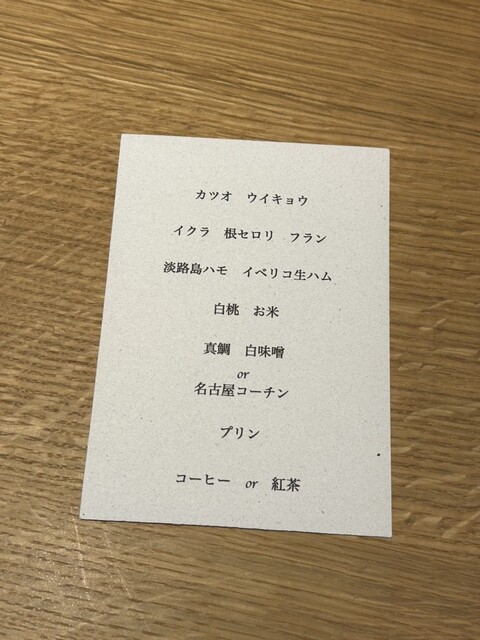 カツオ　ウイキョウ
イクラ　根セロリ　フラン
淡路島ハモ　イベリコ生ハム
白桃　お米
真鯛　白味噌
or
名古屋コーチン
プリン
コーヒー　or　紅茶